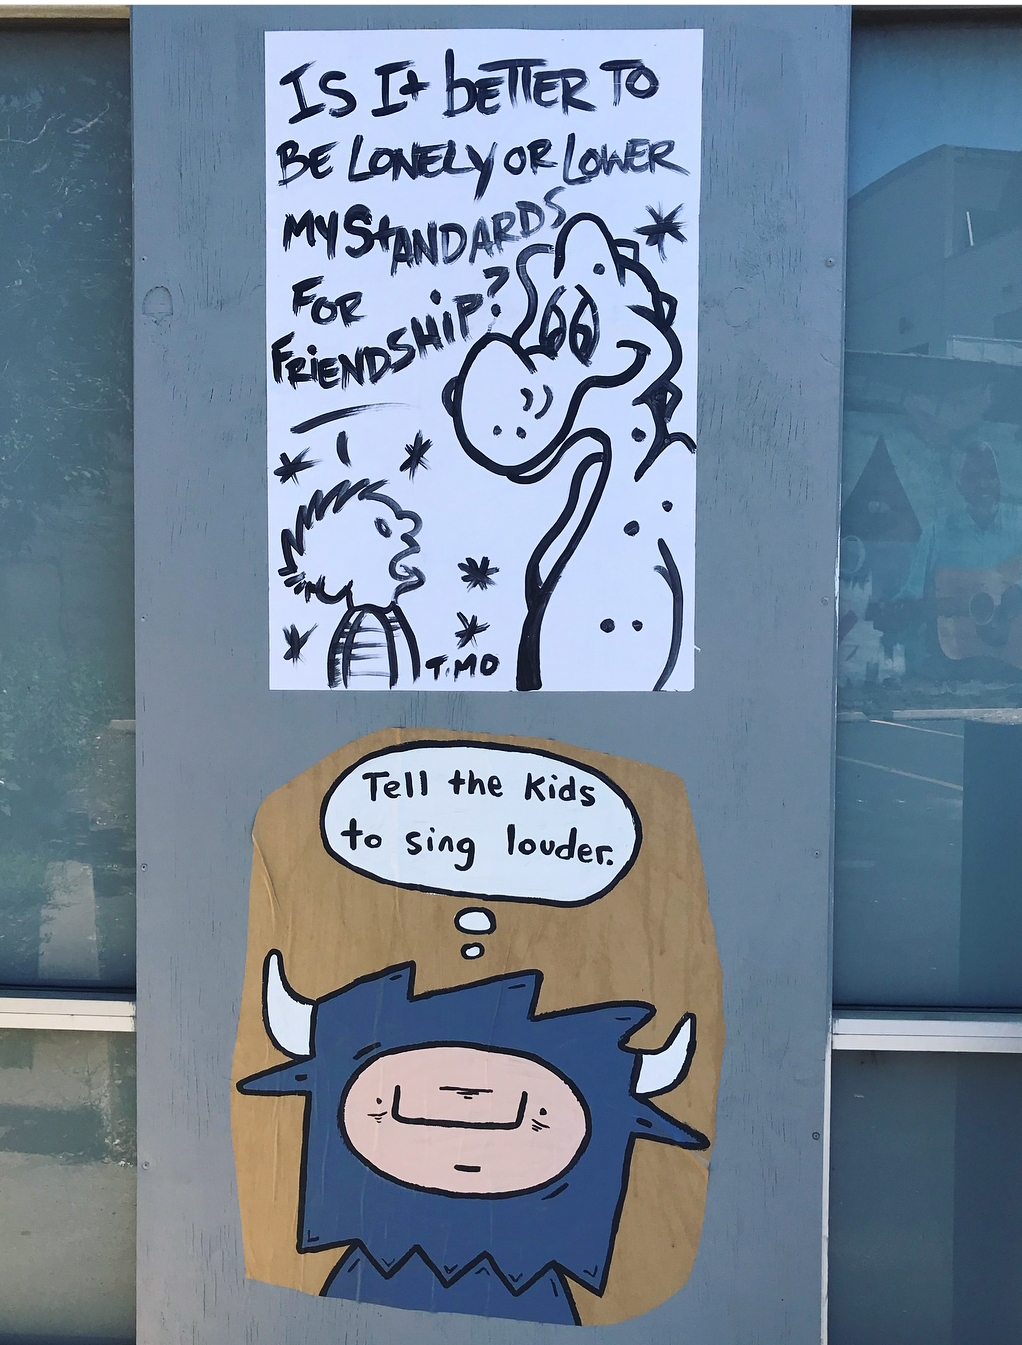 Is It better to
be lonely or lower
my standards
for
friendship?
T.MO
Tell the Kids
to sing louder.